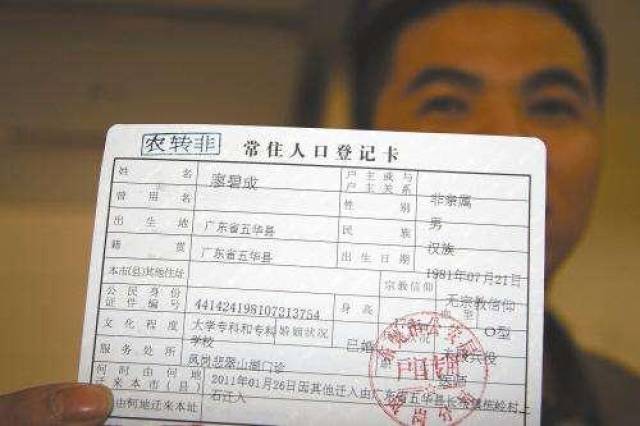 农转非 常住人口登记卡
姓名 廖碧成 户主或与户主关系 非亲属
曾用名 性别 男
出生地 广东省五华县 民族 汉族
籍贯 广东省五华县 出生日期 1981年07月21日
本市(县)其他住址 宗教信仰 无宗教信仰
公民身份证件编号 441424198107213754 身高 血型 O型
文化程度 大学专科和专科学校 婚姻状况 已婚
服务处所 凤岗 翠山湖门诊 医师
何时由何地迁来本市(县) 2011年01月26日因其他迁入由广东省五华县长
由何地迁来本址 石迁入
户口专用